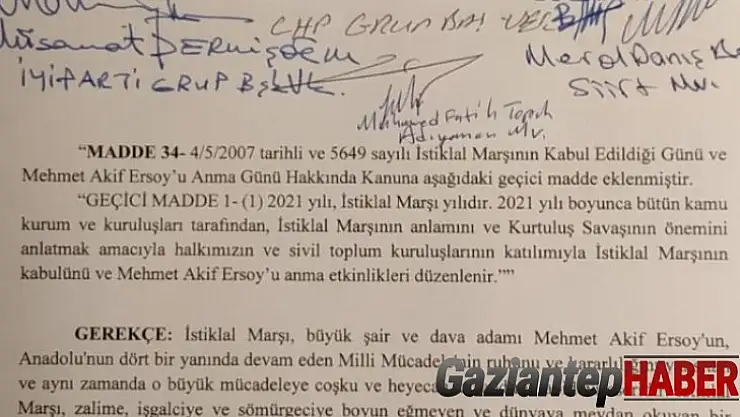 CHP GRUP BŞ. VEK.
Müsavat DERVİŞOĞLU
İYİ PARTİ GRUP BŞK.VK.
Meral Danış
Siirt Mv.
Muhammed Fatih Toprak
Adıyaman Mv.
“MADDE 34- 4/5/2007 tarihli ve 5649 sayılı İstiklal Marşının Kabul Edildiği Günü ve
Mehmet Akif Ersoy’u Anma Günü Hakkında Kanuna aşağıdaki geçici madde eklenmiştir.
“GEÇİCİ MADDE 1- (1) 2021 yılı, İstiklal Marşı yılıdır. 2021 yılı boyunca bütün kamu
kurum ve kuruluşları tarafından, İstiklal Marşının anlamını ve Kurtuluş Savaşının önemini
anlatmak amacıyla halkımızın ve sivil toplum kuruluşlarının katılımıyla İstiklal Marşının
kabulünü ve Mehmet Akif Ersoy’u anma etkinlikleri düzenlenir.””
GEREKÇE: İstiklal Marşı, büyük şair ve dava adamı Mehmet Akif Ersoy'un,
Anadolu'nun dört bir yanında devam eden Milli Mücadelenin ruhunu ve kararlılığını
ve aynı zamanda o büyük mücadeleye coşku ve heyecan
GaziantepHABER
Marşı, zalime, işgalciye ve sömürgeciye boyun eğmeyen ve dünyaya meydan okuyan bir